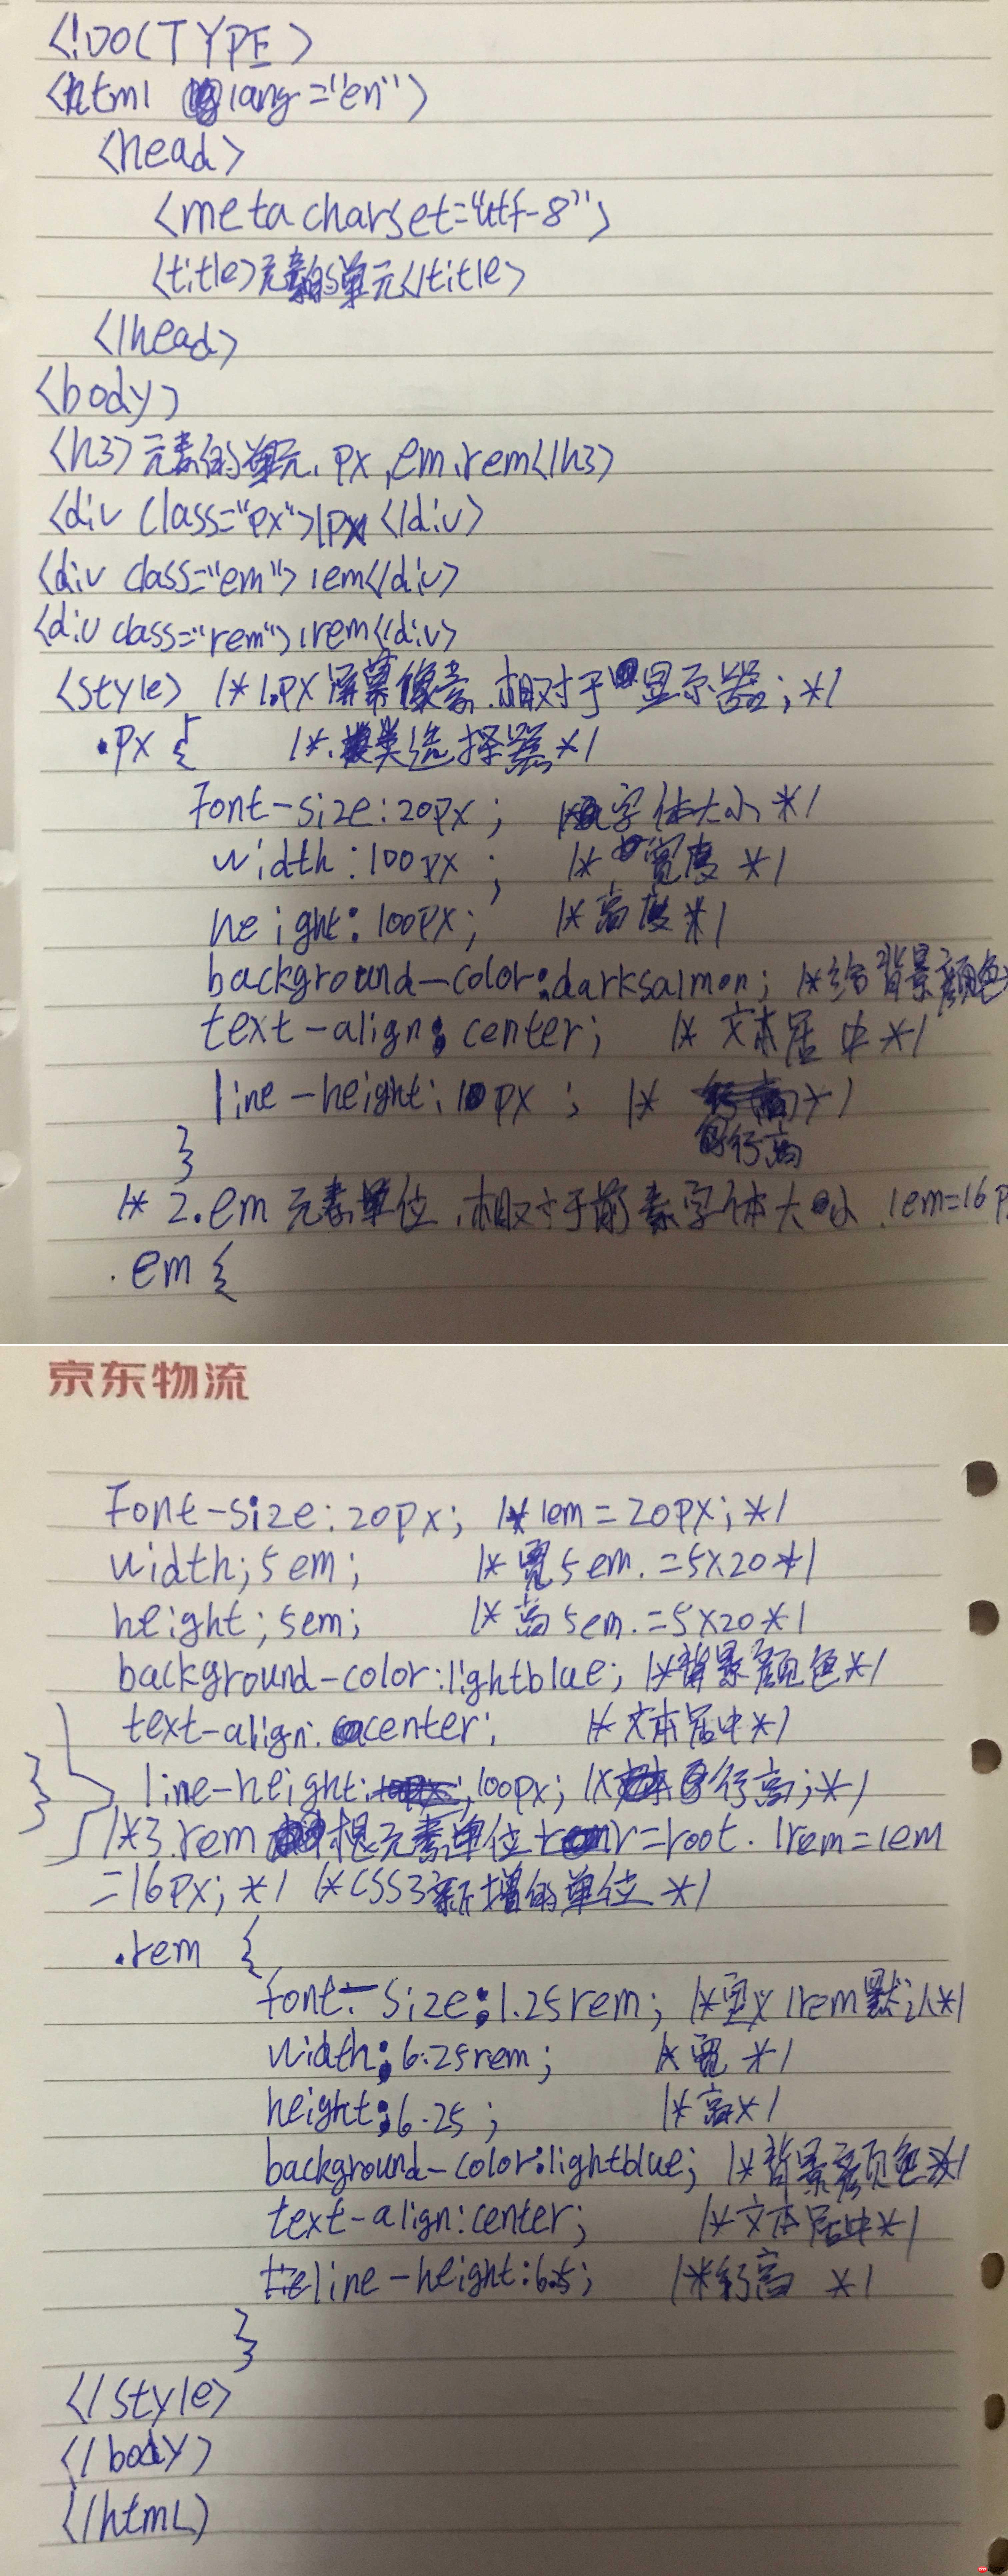 <!DOCTYPE>
<html lang="en">
<head>
<meta charset="utf-8">
<title>元素的单元</title>
</head>
<body>
<h3>元素的单元、px,em、rem</h3>
<div class="px">1px</div>
<div class="em">1em</div>
<div class="rem">1rem</div>
<style> /* 1.px 屏幕像素.相对于显示器; */
.px { /* 类选择器 */
Font-size:20px; 字体大小 */
width:100px; /* 宽度 */
height:100px; /* 高度 */
background-color:darksalmon; /* 给背景颜色*
text-align:center; /* 文本居中 */
line-height:100px; /* */
行高
}
/* 2.em 元素单位,相对于前素字体大小.1em=16p
.em {
京东物流
Font-size:20px; /* 1em=20px; */
width;5em; /* 宽5em.=5x20 */
height;5em; /* 高5em.=5x20 */
background-color:lightblue; /* 背景颜色 */
text-align:center; /* 文本居中 */
line-height:100px; /* 行高; */
}
/*3.rem 根元素单位 r=root.1rem=1em
=16px; */ /*CSS3新增的单位 */
.rem {
font-size:1.25rem; /* 定义1rem默认 */
width:6.25rem; /* 宽 */
height:6.25; /* 高 */
background-color:lightblue; /* 背景颜色 */
text-align:center; /* 文本居中 */
line-height:6.25; /* 行高 */
}
</style>
</body>
</html>